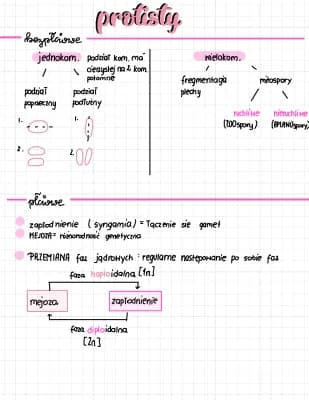 protisty
bezpłciowe
jednokom.
podział kom. ma-
cierzystej na 2 kom.
potomne
podział
poprzeczny
podział
podłużny
1.
1.
2.
2.
wielokom.
fragmentacja
plechy
mitospory
ruchliwe
(ZOOspory)
nieruchliwe
(APLANOspory)
płciowe
zapłodnienie (syngamia) = łączenie się gamet
MEJOZA = różnorodność genetyczna
PRZEMIANA faz jądrowych : regularne następowanie po sobie faz
faza haploidalna [1n]
mejoza
zapłodnienie
faza diploidalna
[2n]